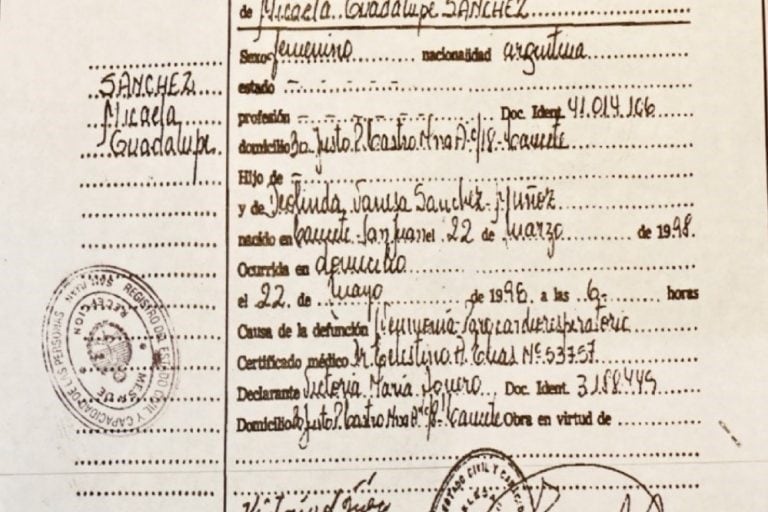 de Micaela Guadalupe SANCHEZ
Sexo femenino nacionalidad argentina
SANCHEZ
Micaela
Guadalupe
estado
profesión Doc. Ident. 41.014.166
domicilio Bo Justo P. Castro Mna A c/18 - Caucete
Hijo de
y de Deolinda Vanesa Sanchez - Muñoz
nacido en Caucete - San Juan el 22 de Marzo de 1998.
Ocurrida en domicilio
el 22 de mayo de 1998 a las 6 horas
Causa de la defunción Neumonía - Paro cardiorespiratorio
Certificado médico Dr Celestino A. Elias Nº 53757
Declarante Victoria Maria Doc. Ident. 3.188.449
Domicilio Bo Justo P. Castro Mna A c/18 - Caucete Obra en virtud de
REGISTRO DEL ESTADO CIVIL Y CAPACIDAD DE LAS PERSONAS
SAN JUAN
RECEPCION
MES. DE
ESTADO CIVIL Y